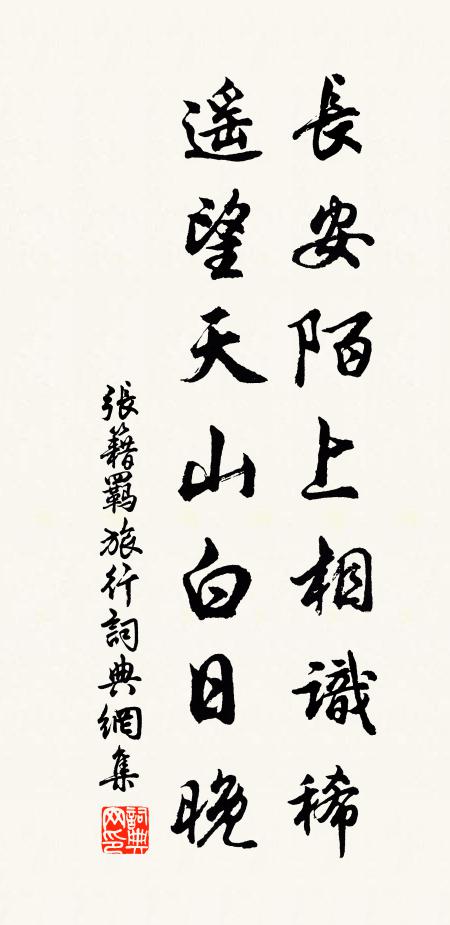 長安陌上相識稀
遥望天山白日晚
張籍羈旅行詞典網集
詞典網印